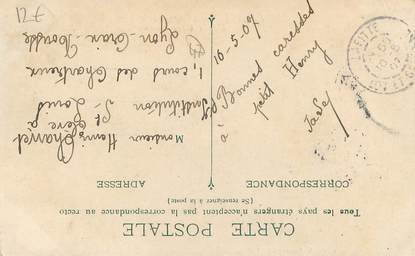 CARTE POSTALE
Tous les pays étrangers n'acceptent pas la correspondance au recto
(Se renseigner à la poste)
CORRESPONDANCE
ADRESSE
à petit Henry
Bonnes caresses
16-5-07
Monsieur Henri Charvet
Institution St Louis
1, cours des Chartreux
Lyon - Croix-Rousse
721